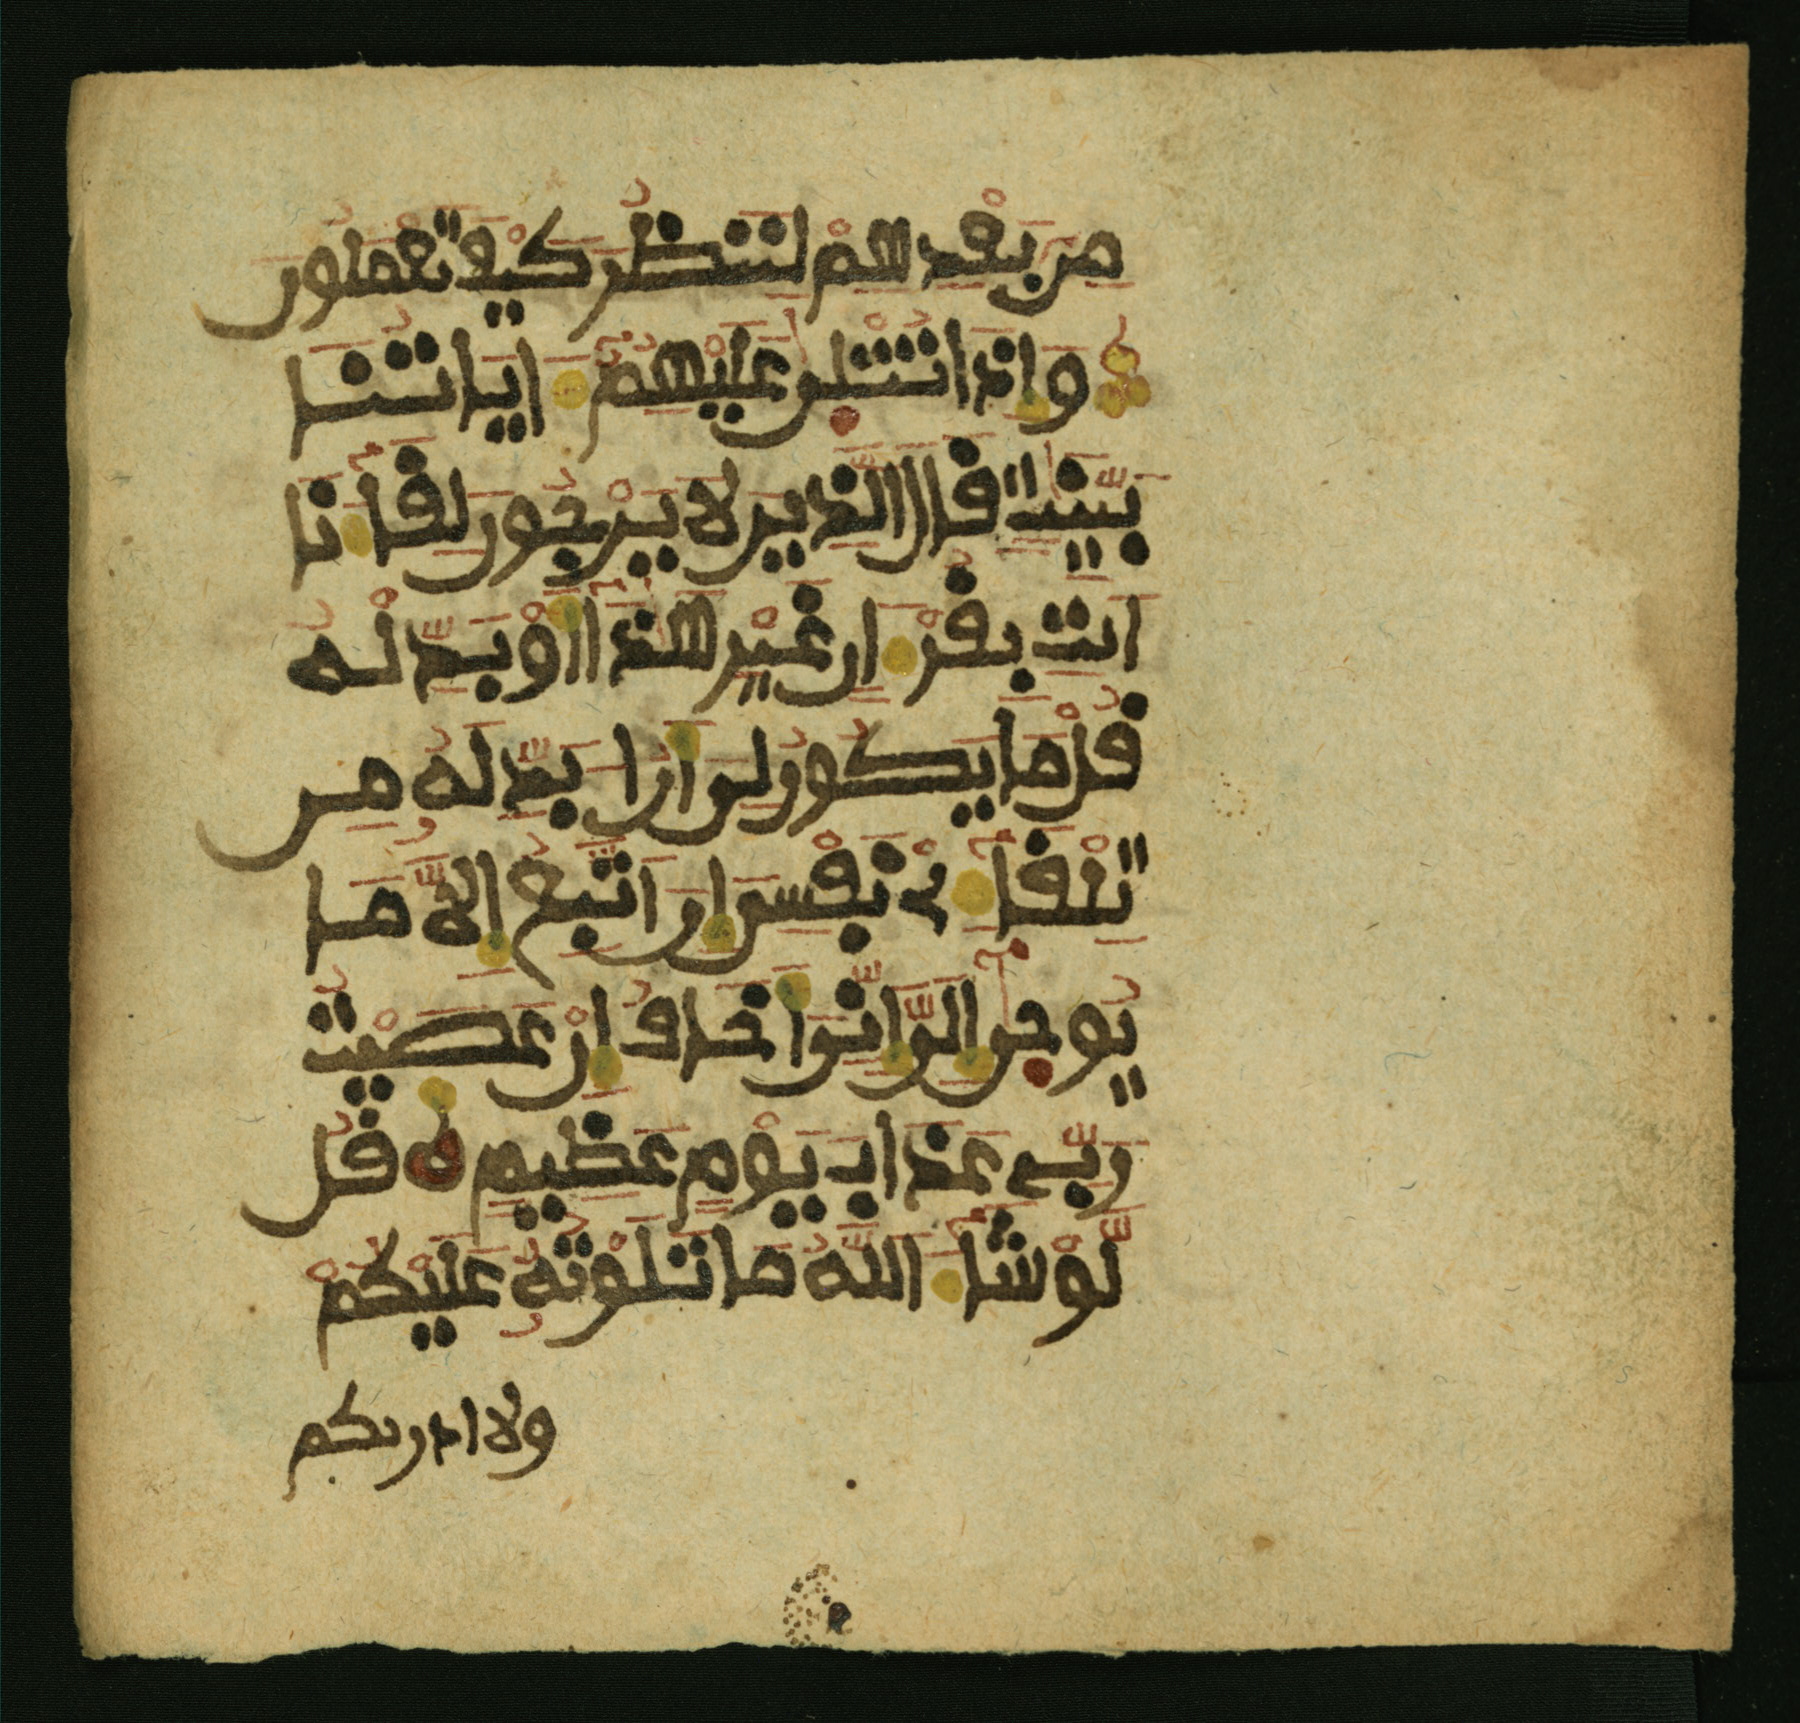 من بعدهم لننظر كيف تعملون
وإذا تتلى عليهم ءاياتنا
بينت قال الذين لا يرجون لقاءنا
ائت بقرءان غير هذا أو بدله
قل ما يكون لى أن ابدله من
تلقاءى نفسى إن اتبع إلا ما
يوحى إلى إنى أخاف إن عصيت
ربى عذاب يوم عظيم قل
لو شاء الله ما تلوته عليكم
ولا ادريكم